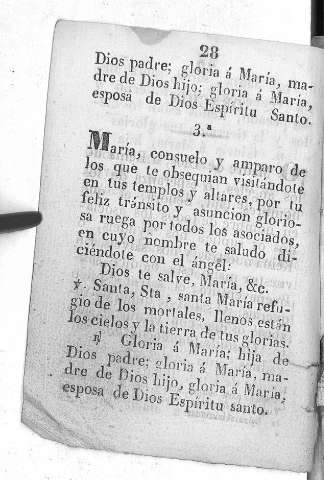 28
Dios padre; gloria á María, ma-
dre de Dios hijo; gloria á María,
esposa de Dios Espíritu Santo.
3.ª
María, consuelo y amparo de
los que te obsequian visitándote
en tus templos y altares, por tu
feliz tránsito y asunción glorio-
sa ruega por todos los asociados,
en cuyo nombre te saludo di-
ciéndote con el ángel:
Dios te salve, María, &c.
℣. Santa, Sta , santa María refu-
gio de los mortales, llenos están
los cielos y la tierra de tus glorias.
℟ Gloria á María; hija de
Dios padre; gloria á María, ma-
dre de Dios hijo, gloria á María,
esposa de Dios Espíritu santo.